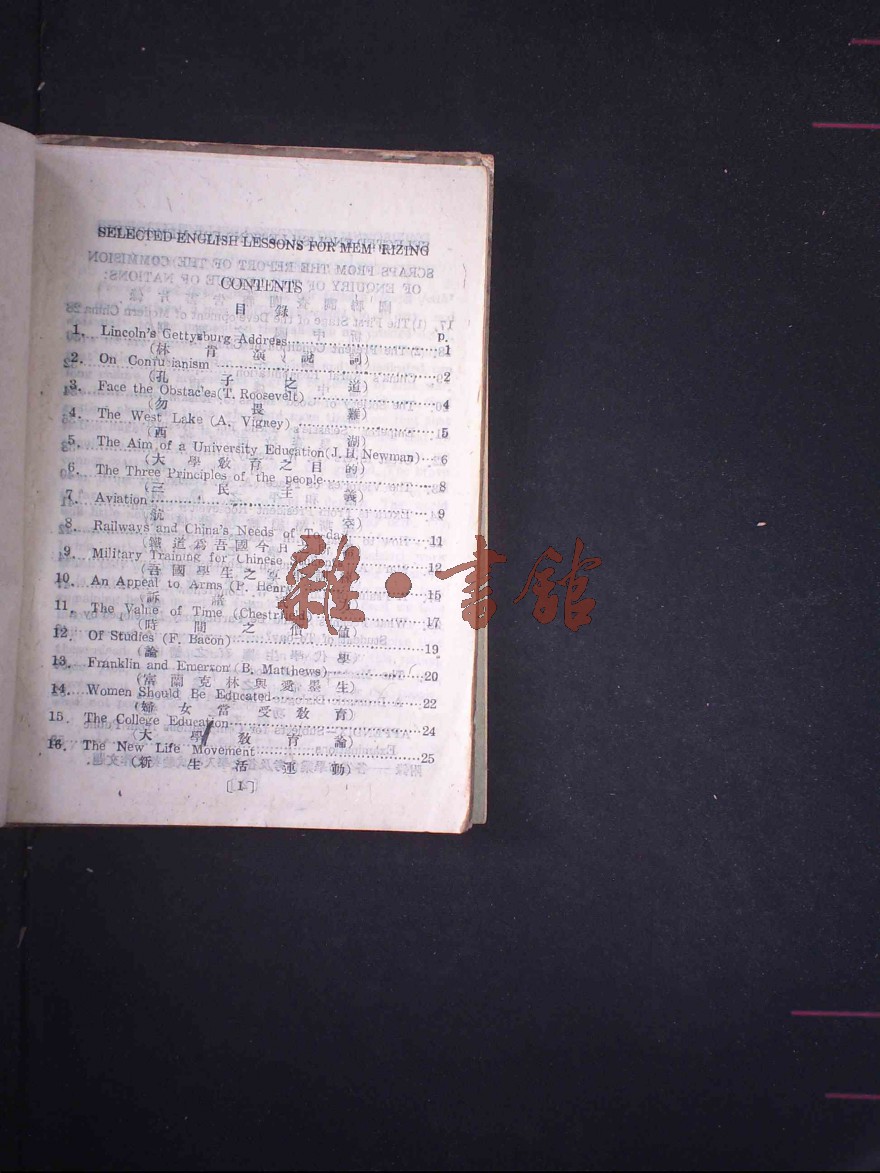 SELECTED ENGLISH LESSONS FOR MEM RIZING
CONTENTS
目錄
p.
1. Lincoln's Gettysburg Address 1
(林肯演說詞)
2. On Confu ianism 2
(孔子之道)
3. Face the Obstac'es (T. Roosevelt) 4
(勿畏難)
4. The West Lake (A. Vigney) 5
(西湖)
5. The Aim of a University Education (J. H. Newman) 6
(大學敎育之目的)
6. The Three Principles of the people 8
(三民主義)
7. Aviation 9
(航空)
8. Railways and China's Needs of Today 11
(鐵道爲吾國今日
9. Military Training for Chinese 12
(吾國學生之軍
10. An Appeal to Arms (P. Henry) 15
(訴諸
11. The Value of Time (Chestrfield) 17
(時間之價値)
12. Of Studies (F. Bacon) 19
(論學)
13. Franklin and Emerson (B. Matthews) 20
(富蘭克林與愛墨生)
14. Women Should Be Educated 22
(婦女當受敎育)
15. The College Education 24
(大學敎育論)
16. The New Life Movement 25
(新生活運動)
[1]
雜·書館